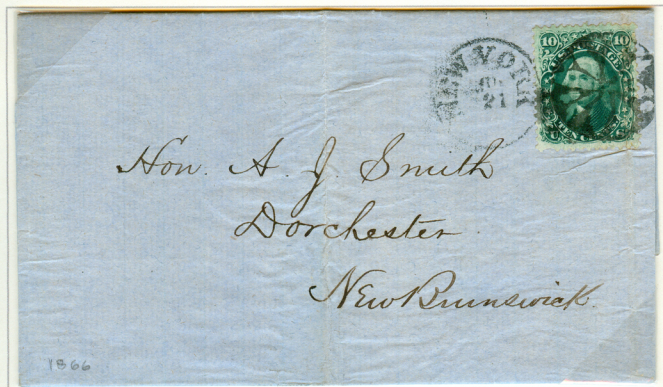 10 10
NEW YORK
21
Hon. A. J. Smith
Dorchester
New Brunswick.
1866